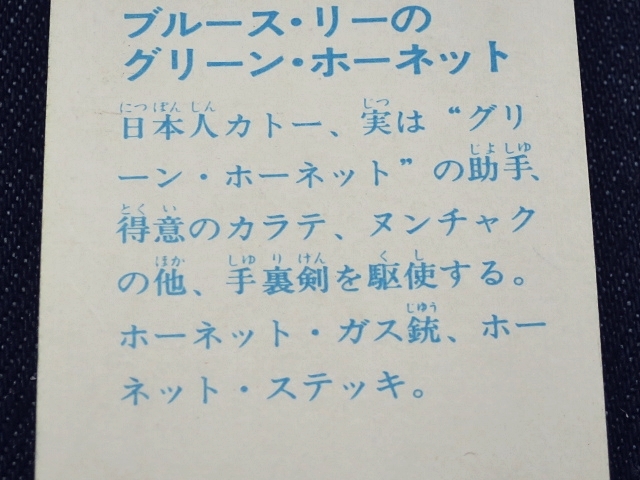 ブルース・リーの
グリーン・ホーネット
日本人カトー、実は“グリ
ーン・ホーネット”の助手、
得意のカラテ、ヌンチャク
の他、手裏剣を駆使する。
ホーネット・ガス銃、ホー
ネット・ステッキ。